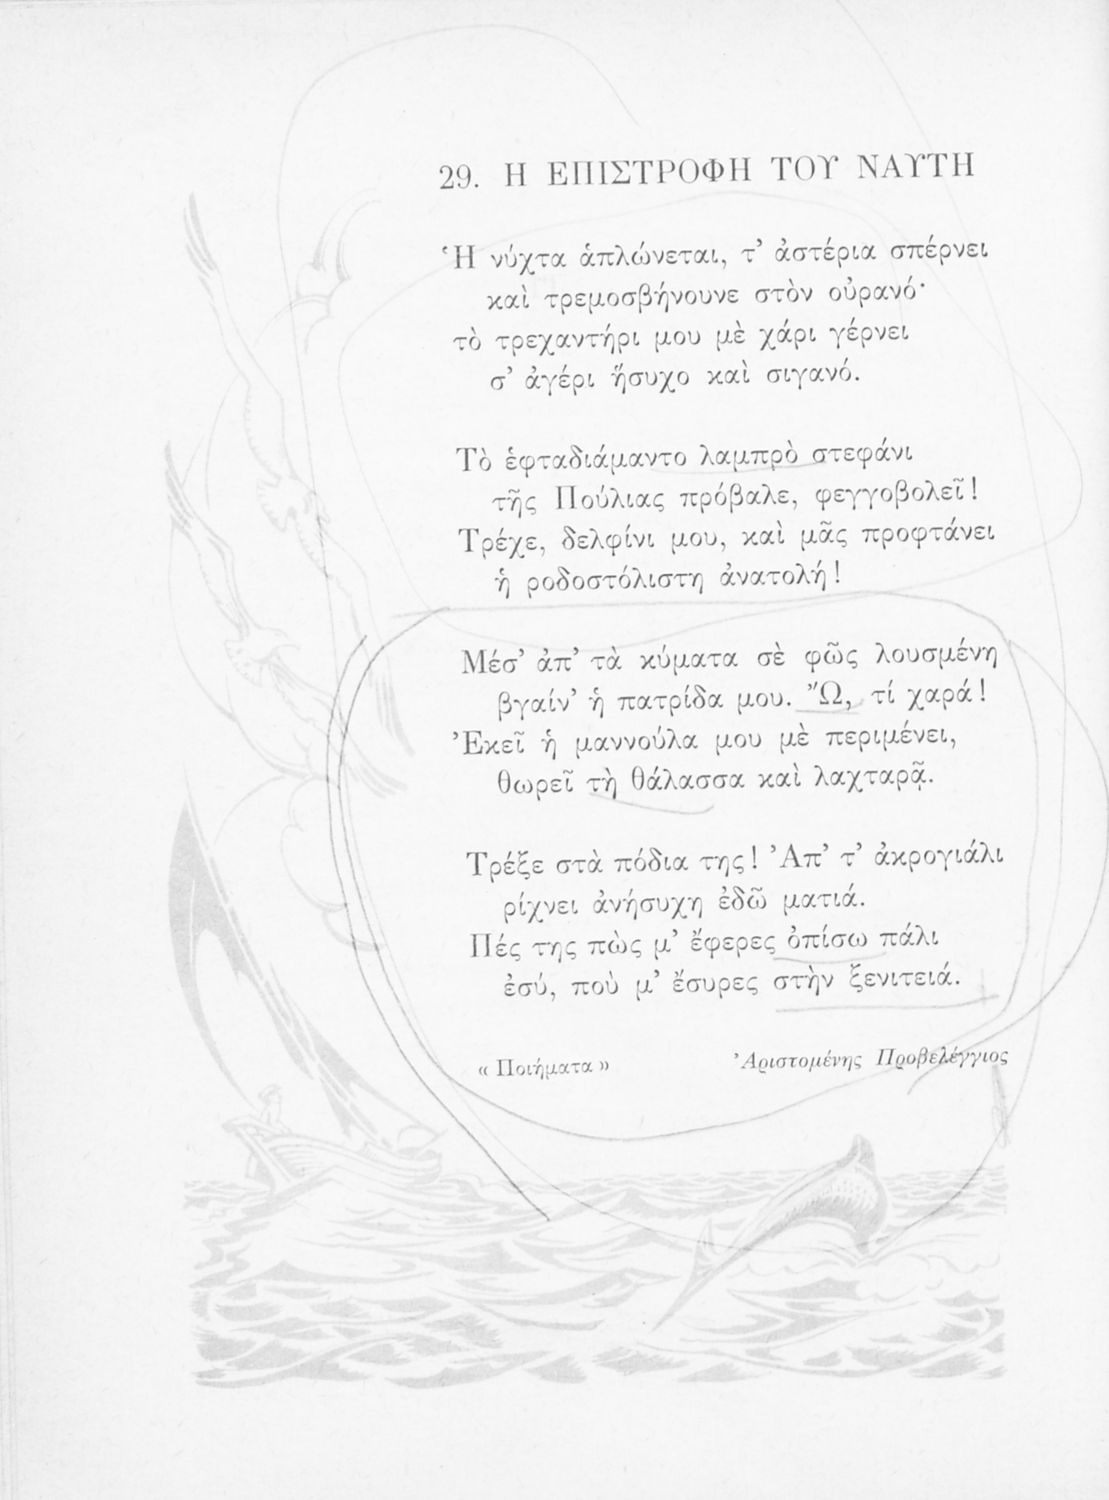 29. Η ΕΠΙΣΤΡΟΦΗ ΤΟΥ ΝΑΥΤΗ
Ἡ νύχτα ἁπλώνεται, τ᾿ ἀστέρια σπέρνει
καὶ τρεμοσβήνουνε στὸν οὐρανό·
τὸ τρεχαντήρι μου μὲ χάρι γέρνει
σ᾿ ἀγέρι ἥσυχο καὶ σιγανό.
Τὸ ἑφταδιάμαντο λαμπρὸ στεφάνι
τῆς Πούλιας πρόβαλε, φεγγοβολεῖ!
Τρέχε, δελφίνι μου, καὶ μᾶς προφτάνει
ἡ ροδοστόλιστη ἀνατολή!
Μέσ᾿ ἀπ᾿ τὰ κύματα σὲ φῶς λουσμένη
βγαίν᾿ ἡ πατρίδα μου. Ὤ, τί χαρά!
Ἐκεῖ ἡ μαννούλα μου μὲ περιμένει,
θωρεῖ τὴ θάλασσα καὶ λαχταρᾷ.
Τρέξε στὰ πόδια της! Ἀπ᾿ τ᾿ ἀκρογιάλι
ρίχνει ἀνήσυχη ἐδῶ ματιά.
Πές της πὼς μ᾿ ἔφερες ὀπίσω πάλι
ἐσύ, ποὺ μ᾿ ἔσυρες στὴν ξενιτειά.
« Ποιήματα » Ἀριστομένης Προβελέγγιος